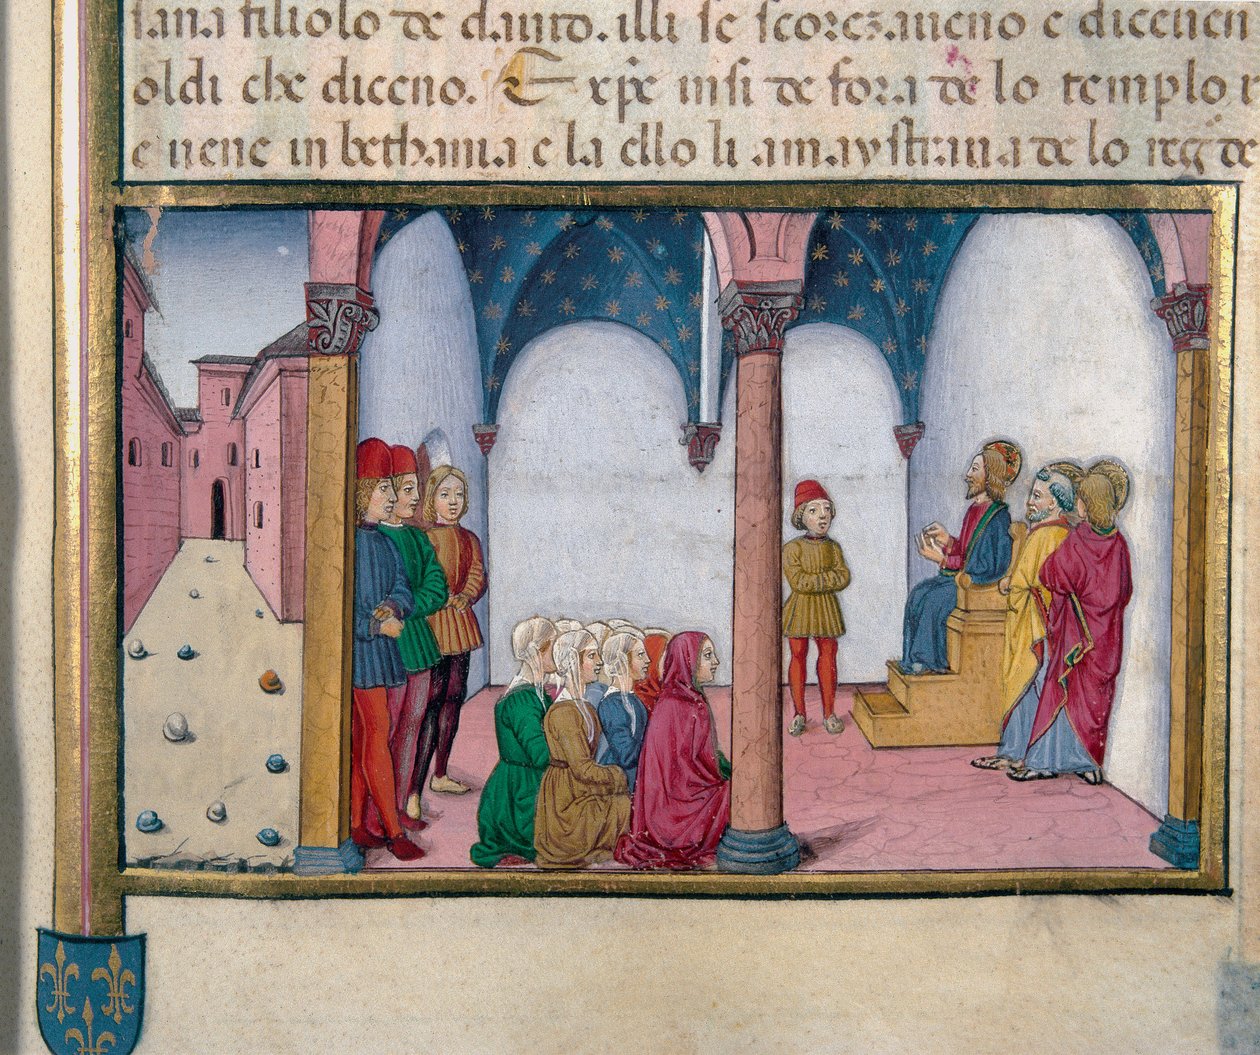 sana filiolo de dauid. illi se scorezaueno e diceuen
oldi che diceno. E xp̄e insi de fora de lo templo
e uene in bethania e la ello li amaystraua de lo reḡ de